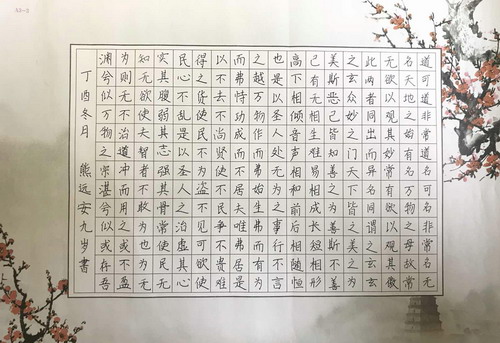 道可道非常道名可名非常名无
名天地之始有名万物之母故常
无欲以观其妙常有欲以观其徼
此两者同出而异名同谓之玄玄
之玄众妙之门天下皆知美之为
美斯恶已皆知善之为善斯不善
已有无相生难易相成长短相形
高下相倾音声相和前后相随恒
也是以圣人处无为之事行不言
之越万物作而弗始生而弗有为
而弗恃功成而弗居夫唯弗居是
以不去不尚贤使民不争不贵难
得之货使民不为盗不见可欲使
民心不乱是以圣人之治虚其心
实其腹弱其志强其骨常使民无
知无欲使夫智者不敢为也为无
为则无不治道冲而用之或不盈
渊兮似万物之宗湛兮似或存吾
丁酉冬月 熊远安九岁书